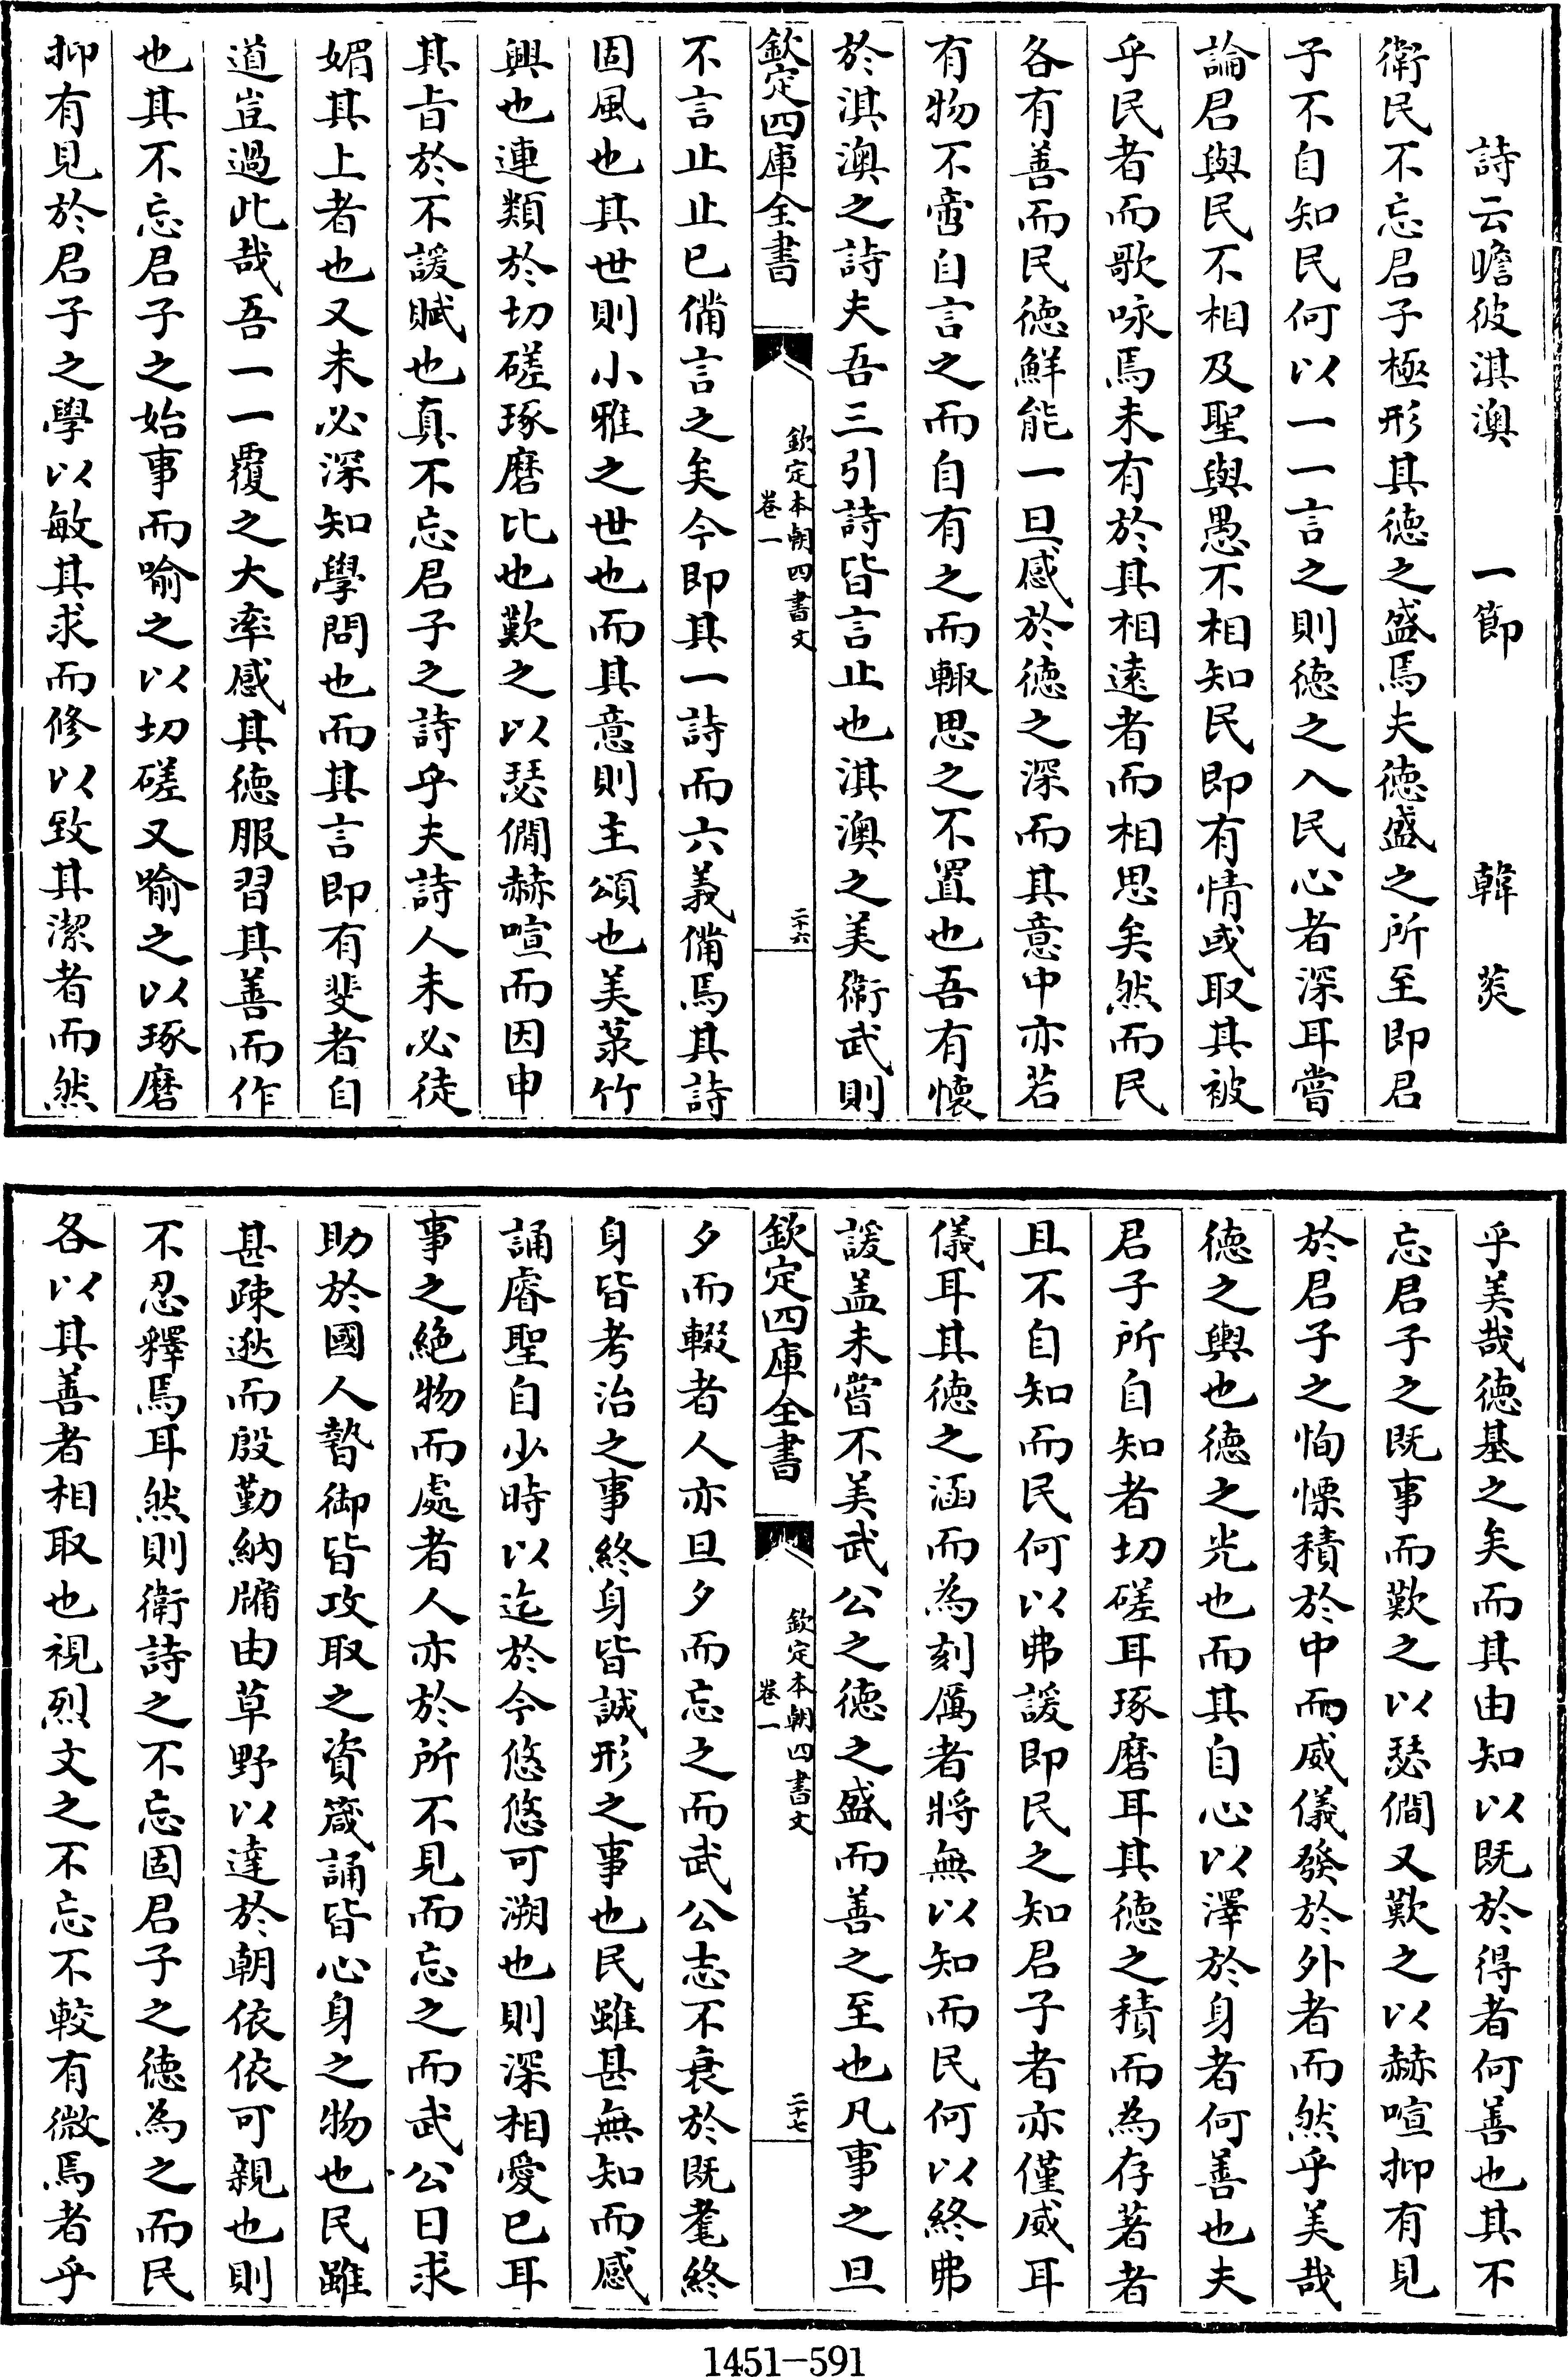 詩云瞻彼淇澳　一節　韓菼
衛民不忘君子極形其徳之盛焉夫徳盛之所至即君
子不自知民何以一一言之則徳之入民心者深耳嘗
論君與民不相及聖與愚不相知民即有情或取其被
乎民者而歌咏焉未有於其相逺者而相思矣然而民
各有善而民徳鮮能一旦感於徳之深而其意中亦若
有物不啻自言之而自有之而輙思之不置也吾有懐
於淇澳之詩夫吾三引詩皆言止也淇澳之美衛武則
欽定四庫全書
欽定本朝四書文
卷一
二十六
不言止止已備言之矣今即其一詩而六義備焉其詩
固風也其世則小雅之世也而其意則主頌也美菉竹
興也連類於切磋琢磨比也歎之以瑟僩赫喧而因申
其㫖於不諼賦也真不忘君子之詩乎夫詩人未必徒
媚其上者也又未必深知學問也而其言即有斐者自
道豈過此哉吾一一覆之大率感其徳服習其善而作
也其不忘君子之始事而喻之以切磋又喻之以琢磨
抑有見於君子之學以敏其求而修以致其潔者而然
乎美哉徳基之矣而其由知以既於得者何善也其不
忘君子之既事而歎之以瑟僩又歎之以赫喧抑有見
於君子之恂慄積於中而威儀發於外者而然乎美哉
徳之輿也徳之光也而其自心以澤於身者何善也夫
君子所自知者切磋耳琢磨耳其徳之積而為存著者
且不自知而民何以弗諼即民之知君子者亦僅威耳
儀耳其徳之涵而為刻厲者將無以知而民何以終弗
諼盖未嘗不美武公之徳之盛而善之至也凡事之旦
欽定四庫全書
欽定本朝四書文
卷一
二十七
夕而輟者人亦旦夕而忘之而武公志不衰於既耄終
身皆考治之事終身皆誠形之事也民雖甚無知而感
誦睿聖自少時以迄於今悠悠可溯也則深相愛已耳
事之絶物而處者人亦於所不見而忘之而武公日求
助於國人暬御皆攻取之資箴誦皆心身之物也民雖
甚疎逖而殷勤納牖由草野以達於朝依依可親也則
不忍釋焉耳然則衛詩之不忘固君子之徳為之而民
各以其善者相取也視烈文之不忘不較有微焉者乎
1451-591